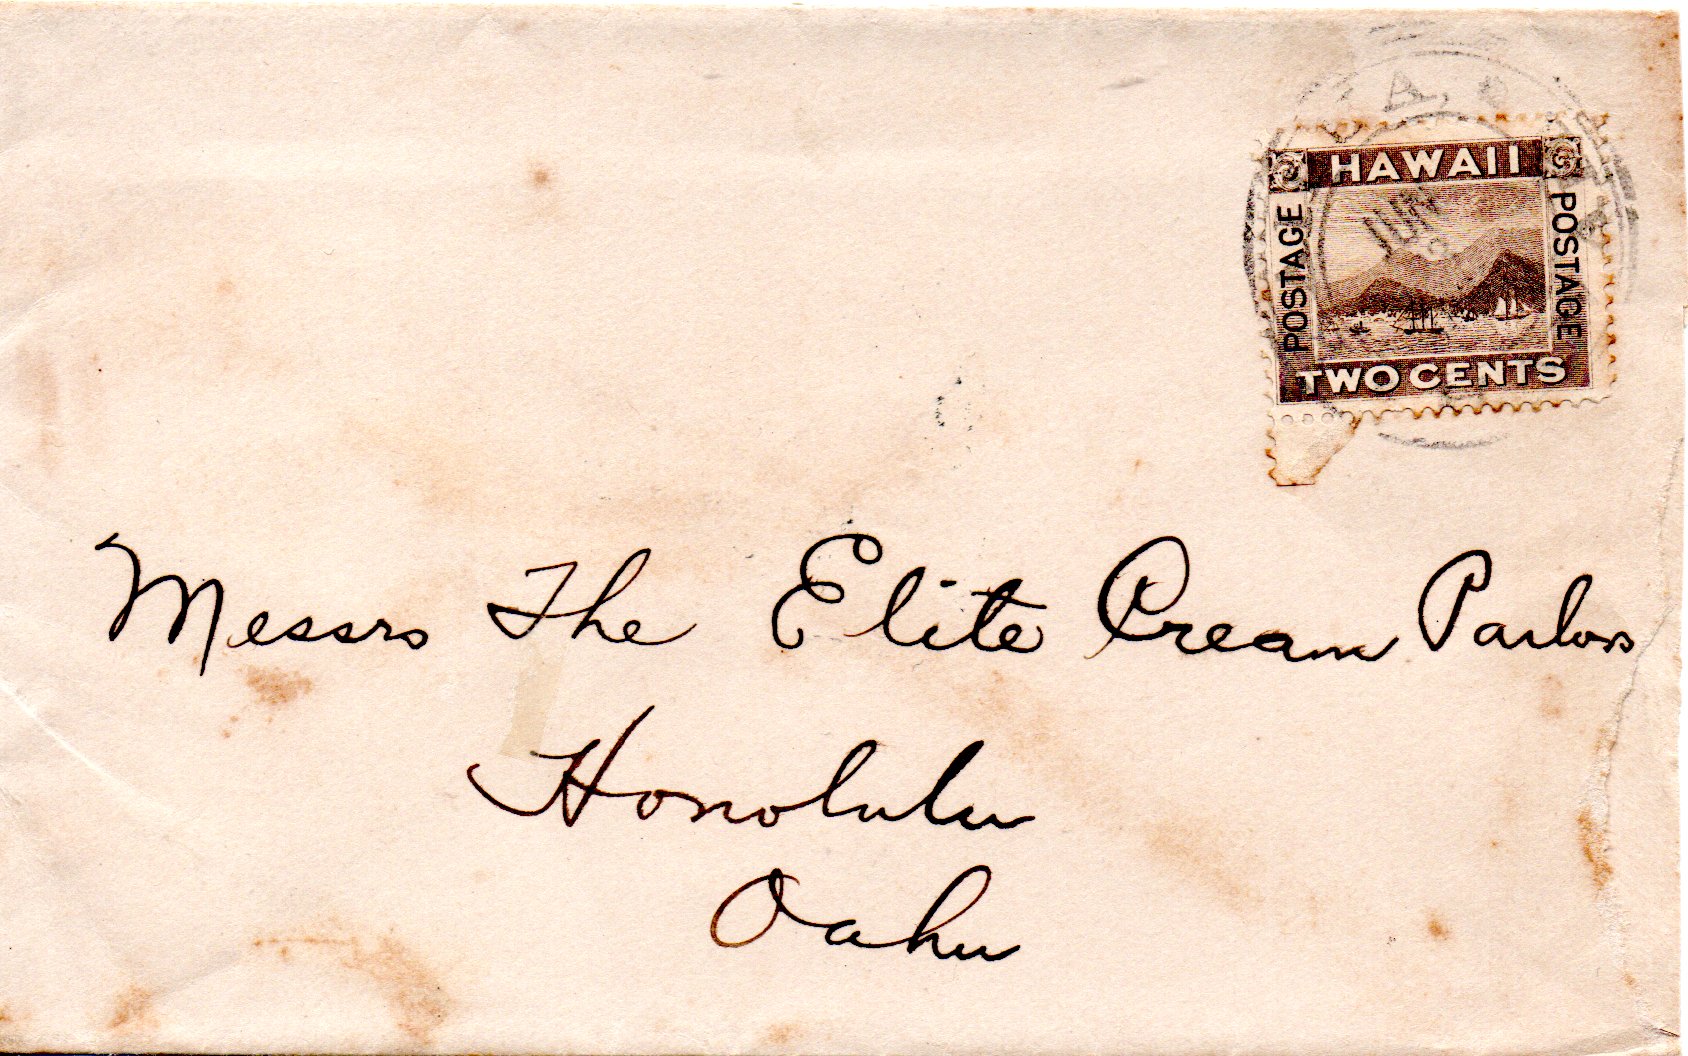 HAWAII
POSTAGE
POSTAGE
TWO CENTS
JUN
Messrs The Elite Cream Parlors
Honolulu
Oahu